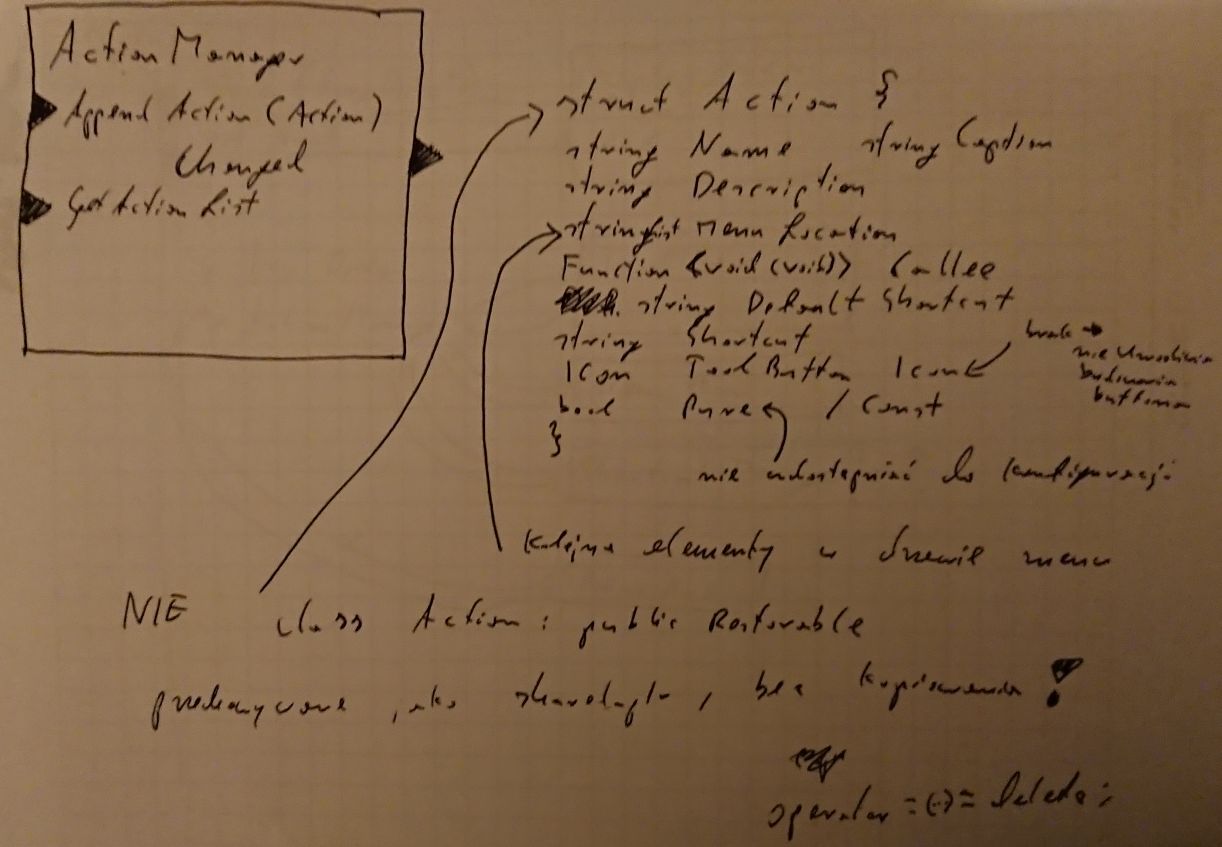 Action Manager
Append Action (Action)
Changed
Get Action List
struct Action {
string Name string Caption
string Description
stringlist Menu Location
Function <void(void)> Callee
string Default Shortcut
string Shortcut
Icon Tool Button Icon
brak →
nie
buttona
bool Pure / Const
}
nie udostępniać do konfiguracji
Kolejne elementy w drzewie menu
NIE class Action : public Restorable
przekazywane jako sharedptr, bez kopiowania !
operator =(-)= delete;